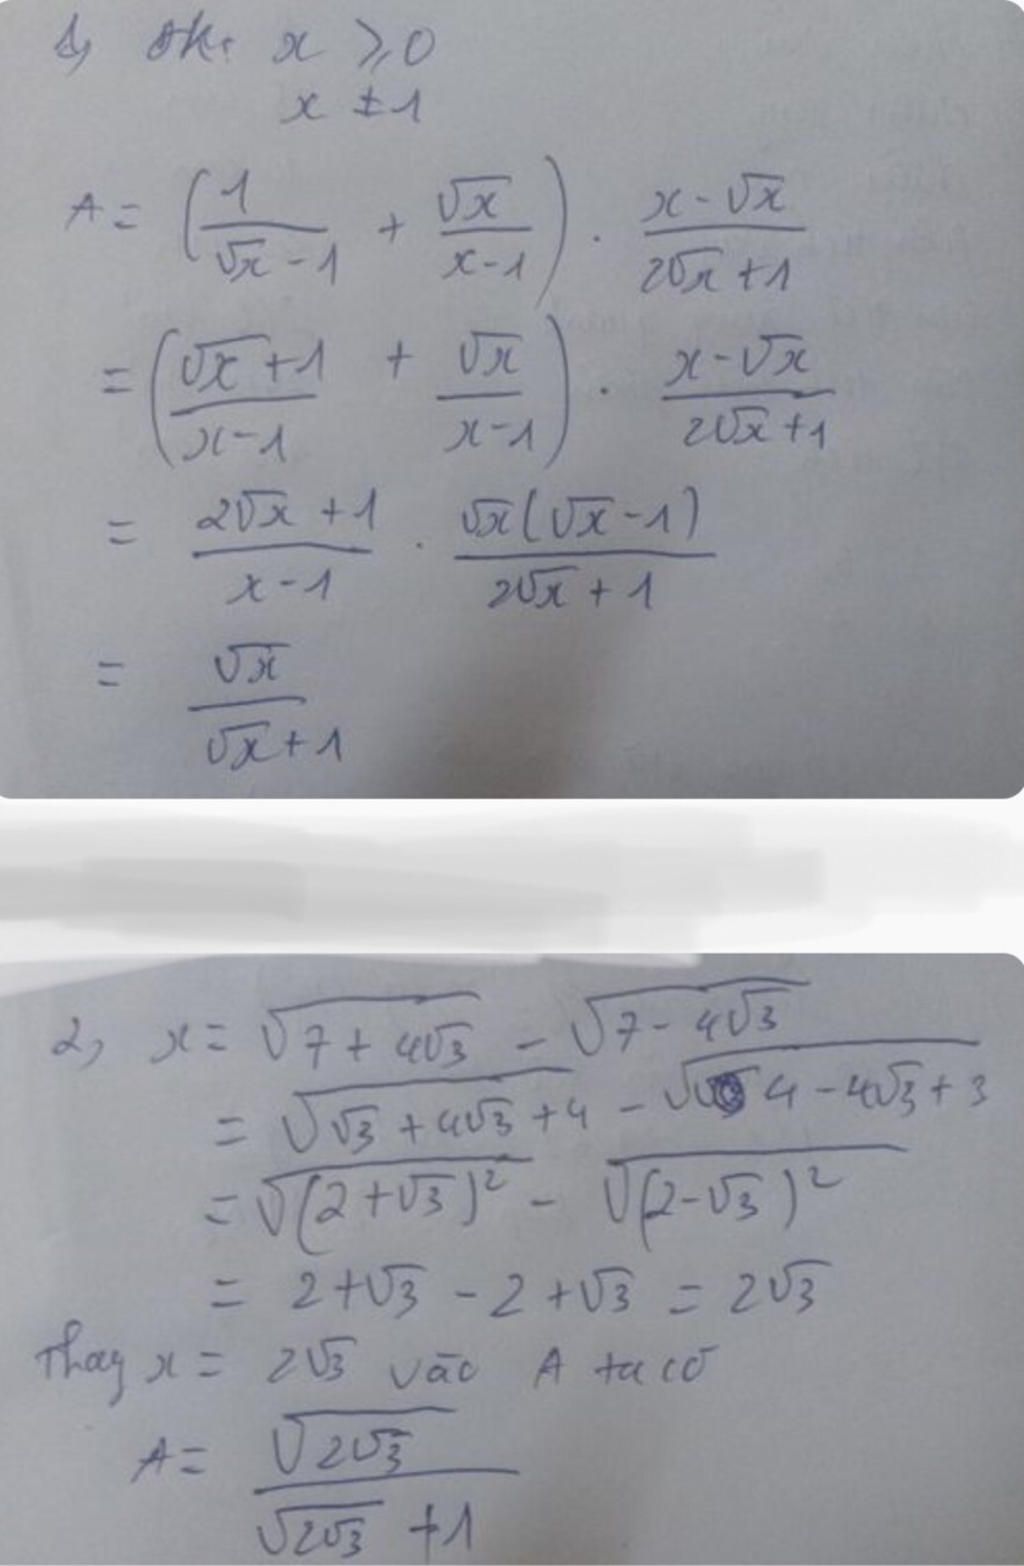 1, ĐK: x ⩾ 0
x ≠ 1
A = (1/(√x - 1) + √x/(x - 1)) · (x - √x)/(2√x + 1)
= ((√x + 1)/(x - 1) + √x/(x - 1)) · (x - √x)/(2√x + 1)
= (2√x + 1)/(x - 1) · √x(√x - 1)/(2√x + 1)
= √x/(√x + 1)
2, x = √(7 + 4√3) - √(7 - 4√3)
= √(√3 + 4√3 + 4) - √(4 - 4√3 + 3)
= √((2 + √3)²) - √((2 - √3)²)
= 2 + √3 - 2 + √3 = 2√3
Thay x = 2√3 vào A ta có
A = √(2√3)/(√(2√3) + 1)